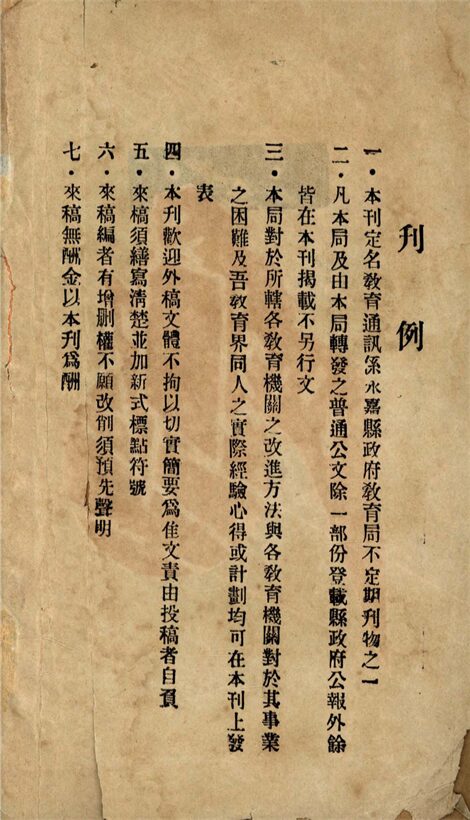 刊例
一・本刊定名教育通訊係永嘉縣政府教育局不定期刊物之一
二・凡本局及由本局轉發之普通公文除一部份登載縣政府公報外餘
皆在本刊揭載不另行文
三・本局對於所轄各教育機關之改進方法與各教育機關對於其事業
之困難及吾教育界同人之實際經驗心得或計劃均可在本刊上發
表
四・本刊歡迎外稿文體不拘以切實簡要爲佳文責由投稿者自負
五・來稿須繕寫淸楚並加新式標點符號
六・來稿編者有增删權不願改削須預先聲明
七・來稿無酬金以本刊爲酬